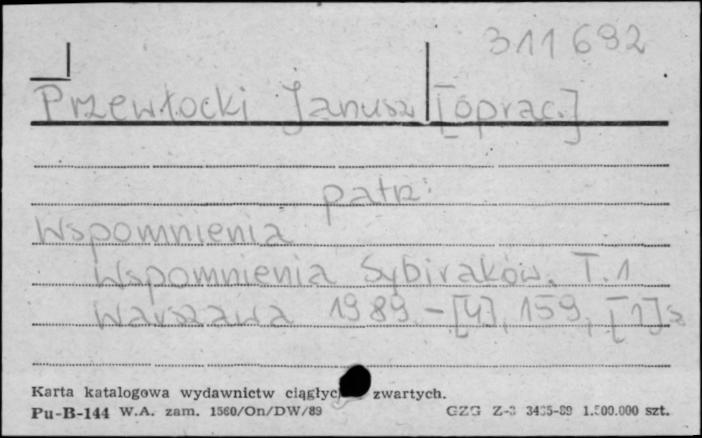 311692
Przewłocki Janusz [oprac.]
patrz:
Wspomnienia
Wspomnienia Sybiraków. T.1
Warszawa 1989.-[4], 159, [1]s
Karta katalogowa wydawnictw zwartych.
Pu-B-144 W.A. zam. 1560/On/DW/89 GZG 1.500.000 szt.